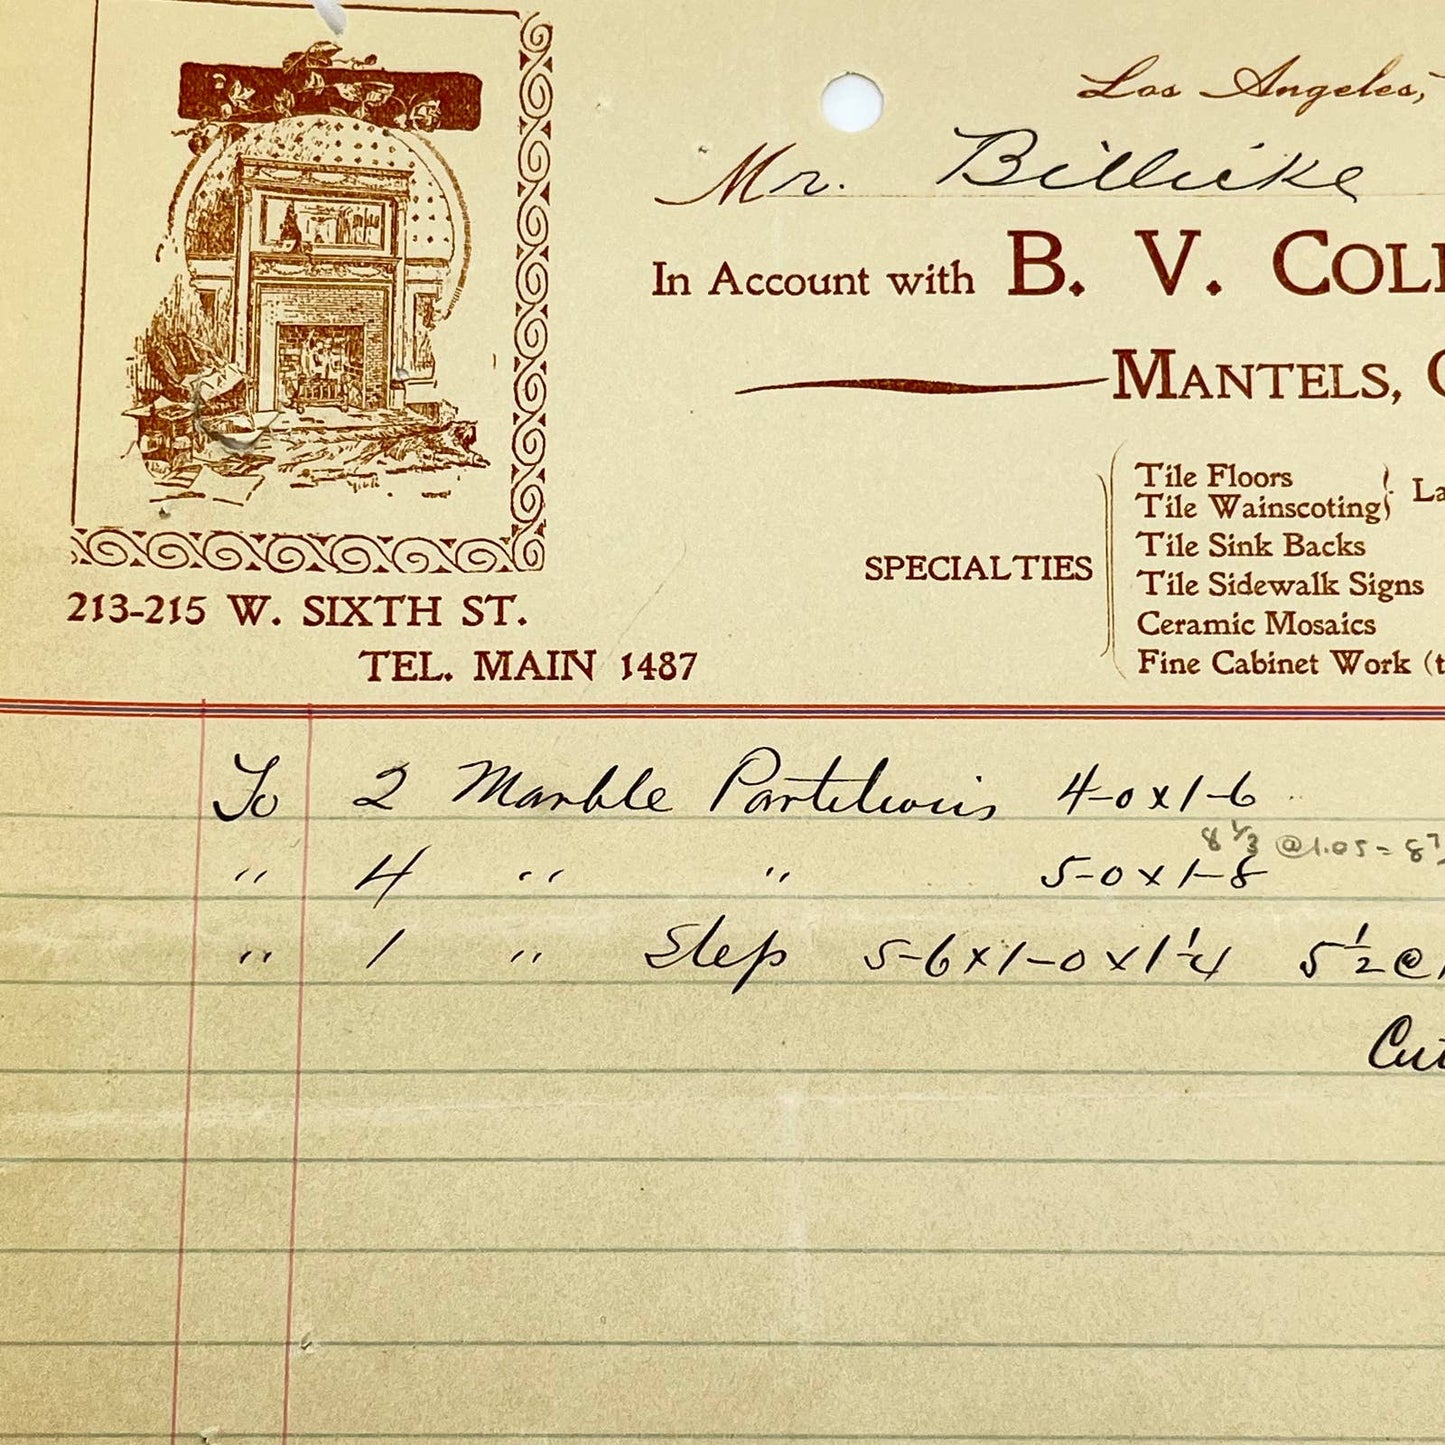 Los Angeles,
Mr. Billicke
In Account with B. V. COLL
MANTELS,
SPECIALTIES
Tile Floors
Tile Wainscoting
La
Tile Sink Backs
Tile Sidewalk Signs
Ceramic Mosaics
Fine Cabinet Work (t
213-215 W. SIXTH ST.
TEL. MAIN 1487
To 2 Marble Partitions 4-0 x 1-6
8 1/3 @ 1.05 = 87
" 4 " " 5-0 x 1-8
" 1 " Step 5-6 x 1-0 x 1 1/4 5 1/2 @
Cut